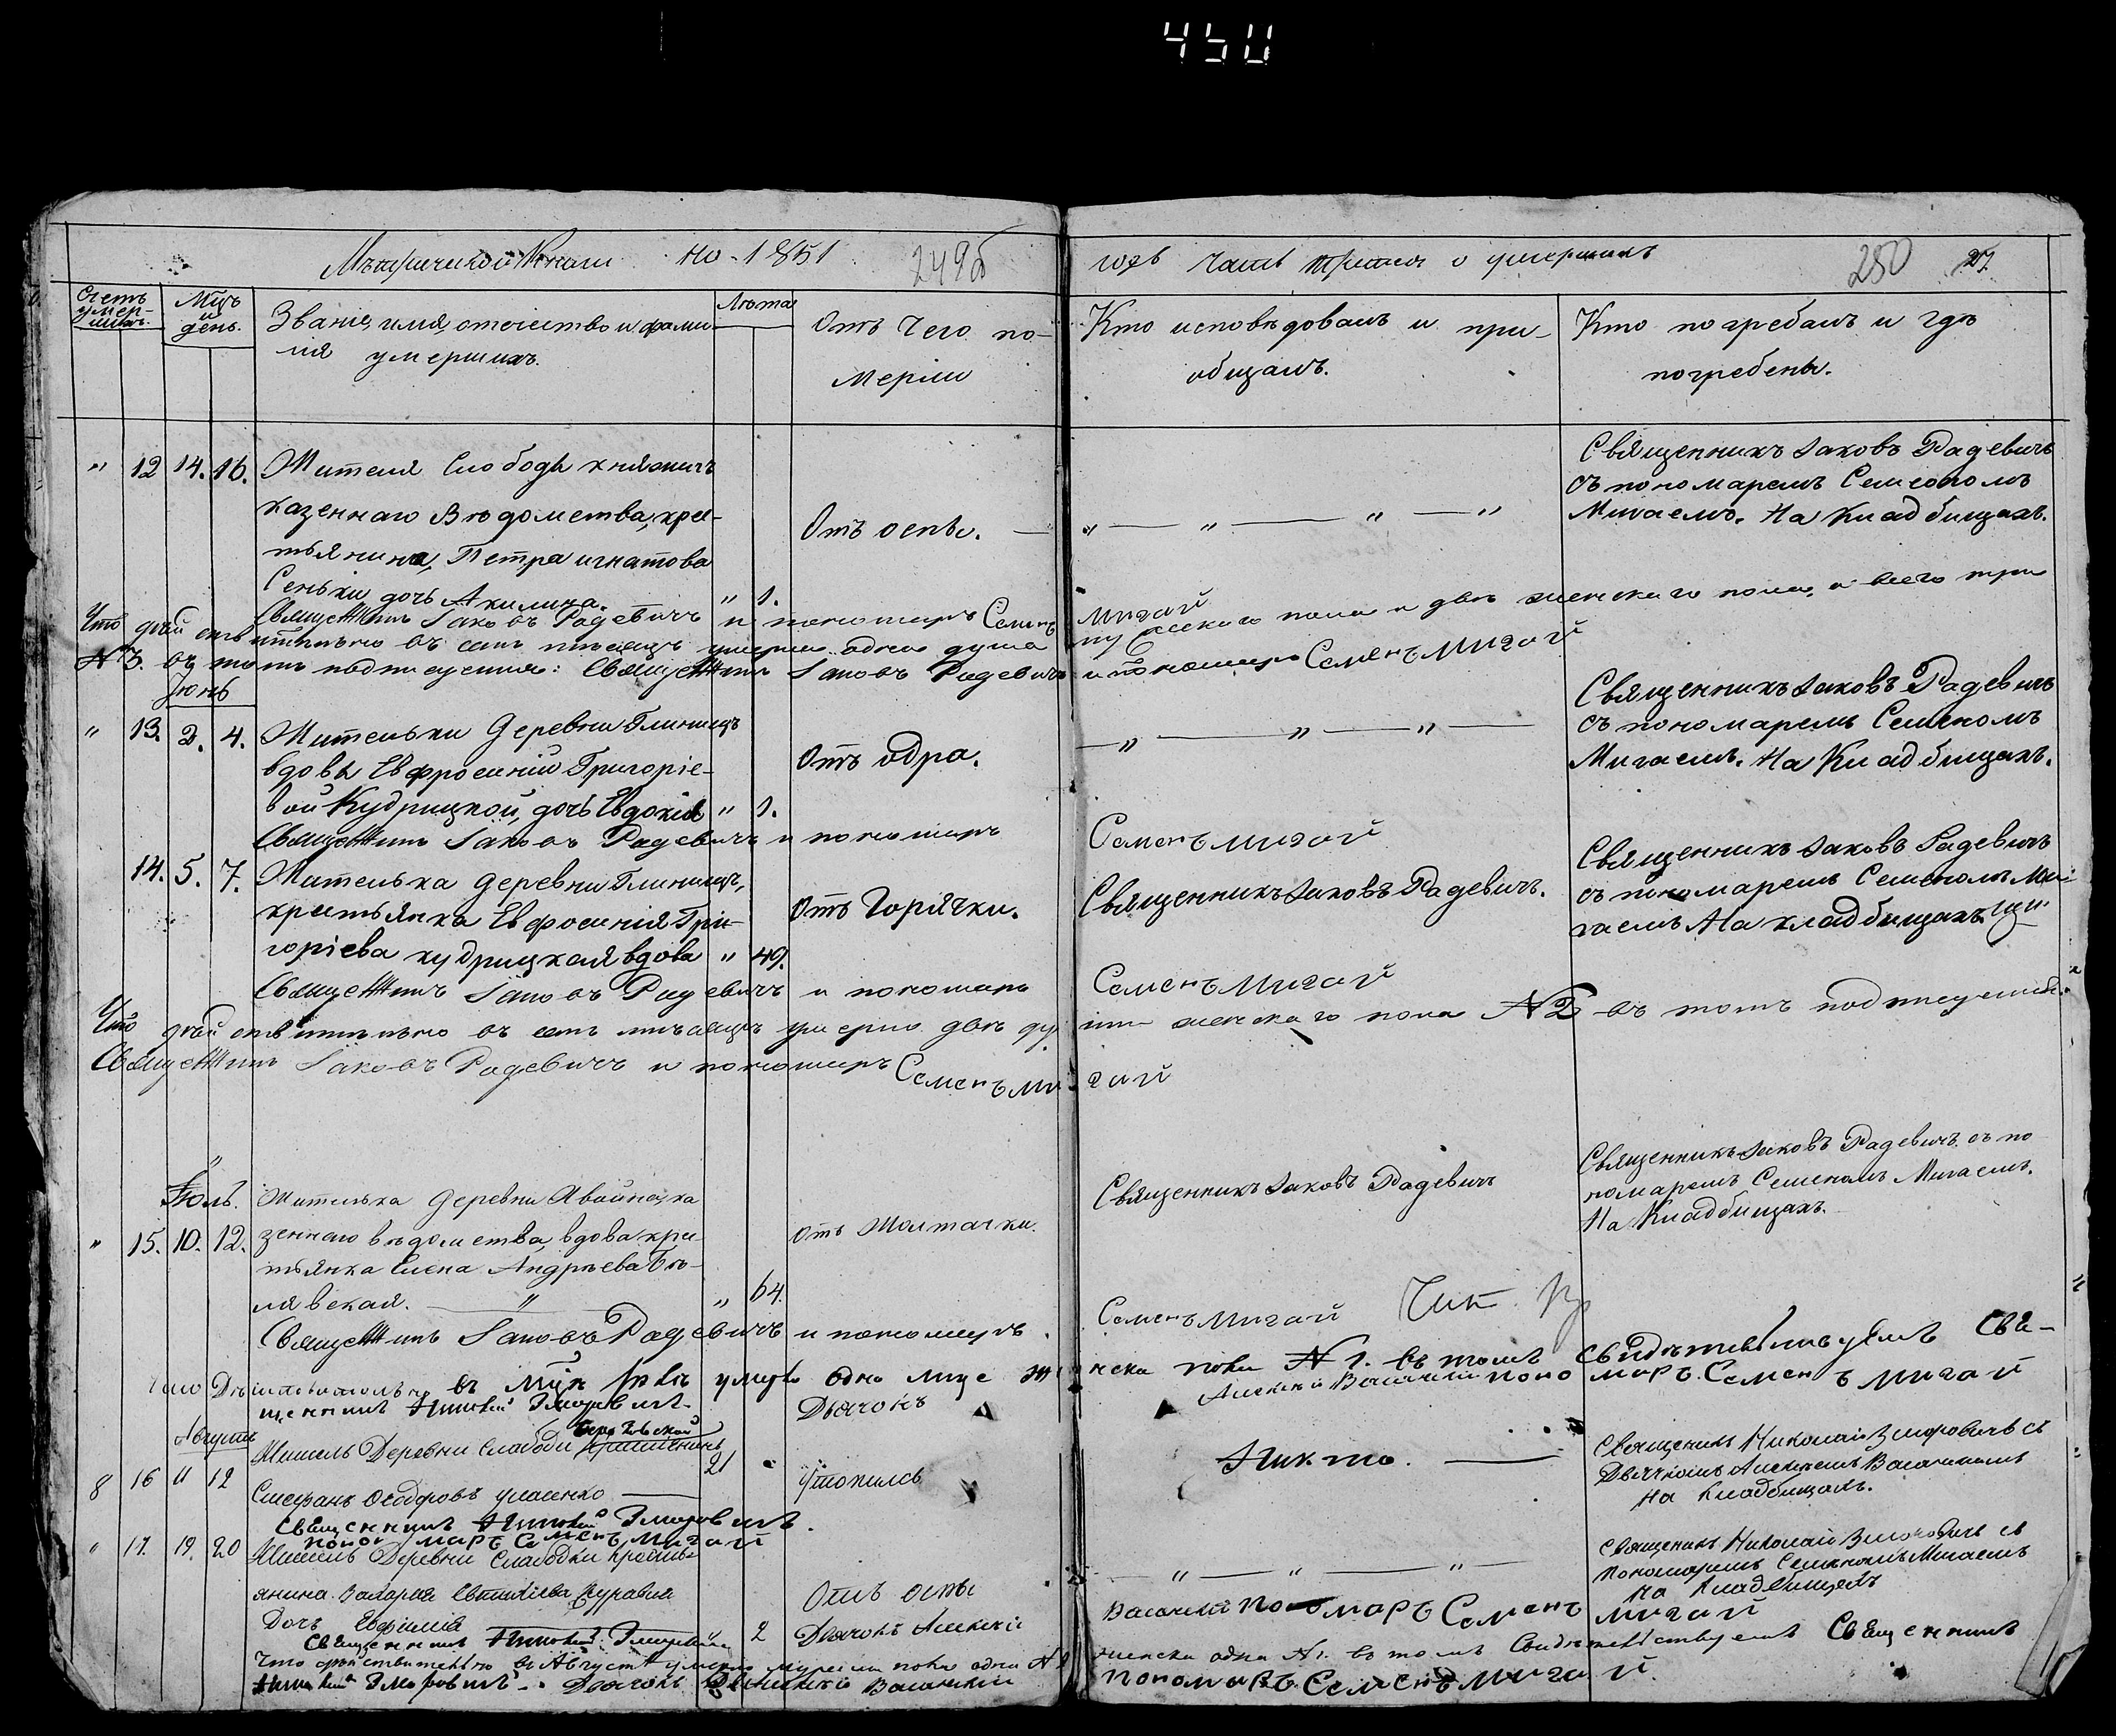 450
Метрической Книги на 1851
249б
годъ часть третья о умершихъ
250 27.
Счетъ умер-шихъ.
Мцъ и день.
Званіе, имя, отечество и фами-
лія умершихъ.
Лѣта
Отъ чего по-
мерли
Кто исповѣдовалъ и при-
общалъ.
Кто погребалъ и гдѣ
погребены.
" 12 14. 16. Жителя Слободы
казеннаго Вѣдомства, кре-
тьянина, Петра игнатова
Сеньки дочь Акилина. " 1.
Отъ оспы. —
" — " — " — "
Священникъ Іаковъ Радевичъ
съ пономаремъ Семеномъ
Мигаемъ. На Кладбищахъ.
Священникъ Іаковъ Радевичъ и пономарь Семенъ Мигай
Что дѣйствительно въ семъ мѣсяцѣ умерли одна душа мужескаго пола и двѣ женскаго пола, а всего три
№ 3. въ томъ подписуемся: Священникъ Іаковъ Радевичъ и пономарь Семенъ Мигай
Іюнь
" 13. 2. 4. Жительки деревни Глиницъ
вдовы Евфросиніи Григоріе-
вой Кудрицкой, дочь Евдокія " 1.
Отъ одра.
— " — " — " —
Священникъ Іаковъ Радевичъ
съ пономаремъ Семеномъ
Мигаемъ. На Кладбищахъ.
Священникъ Іаковъ Радевичъ и пономарь Семенъ Мигай
14. 5. 7. Жителька деревни Глиницъ,
крестьянка Евфросинія Гри-
горіева кудрицкая вдова " 49.
Отъ Горячки.
Священникъ Іаковъ Радевичъ.
Священникъ Іаковъ Радевичъ
съ пономаремъ Семеномъ Ми-
гаемъ На кладбищахъ
Священникъ Іаковъ Радевичъ и пономарь Семенъ Мигай
Что дѣйствительно въ семъ мѣсяцѣ умерло двѣ души женскаго пола № 2 въ томъ подписуемся
Священникъ Іаковъ Радевичъ и пономарь Семенъ Мигай
Іюль.
" 15. 10. 12. Жителька деревни ка-
зеннаго вѣдомства, вдова кре-
тьянка Елена Андрѣева Бѣ-
лявская. — " — " 64.
Отъ
Священникъ Іаковъ Радевичъ
Священникъ Іаковъ Радевичъ съ по-
номаремъ Семеномъ Мигаемъ.
На Кладбищахъ.
Священникъ Іаковъ Радевичъ и пономарь Семенъ Мигай
Что Дѣйствительно въ мцѣ умерло одно лице женска пола № 1. въ томъ свидѣтельствуемъ Свя-
щенникъ Дьячокъ Алексѣй пономаръ Семенъ мигай
Августъ
8 16 11 12 Житель Деревни Слабоди
Стефанъ Феодоровъ 21
Утопился
Никто. —
Священикъ Николай съ
Дьячкомъ Алексѣемъ
на Кладбищахъ.
Священникъ
пономаръ Семенъ мигай
" 17. 19. 20 Житель Деревни Слабодки крестьа-
янина Захарія
Дочь Евфимія " 2
Отъ оспы
— " — " — " —
Священикъ Николай съ
пономаремъ Семеномъ Мигаемъ
на Кладбищахъ
Священникъ Дьячокъ Алексѣй пономаръ Семенъ мигай
Что дѣйствительно въ Августѣ пола одна № 1 женска одна № 1. въ томъ свидѣтельствуемъ Священникъ
Дьячокъ Алексѣй пономаръ Семенъ мигай.